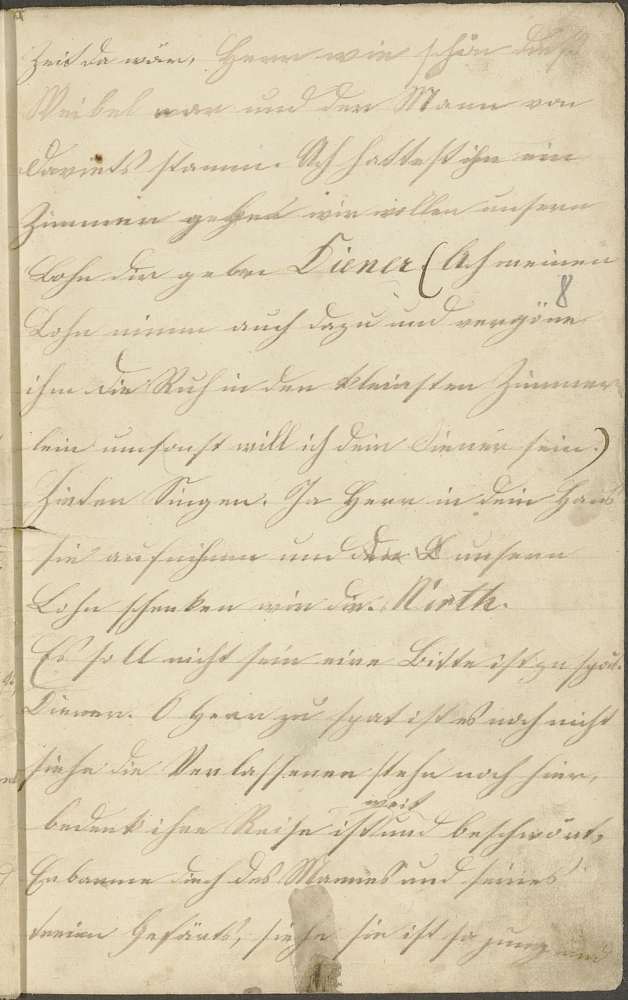 Zeit da wär, Herr wie schön dies
Weibel war und der Mann von
Daviets stamm. Ach hattest ihn ein
Zimmer geben wir wollen unsern
Lohn dir geben Diener (Ach meinen
8
Lohn nimm auch dazu und vergöne
ihm die Ruh in den kleinsten Zimmer
lein umsonst will ich dein Diener sein.)
Hirten Singen. Ja Herr in dein Haus
sie aufnihmm und den L unsern
Lohn schenken wir dir. Wirth.
Es soll nicht sein eire Bitte ist zu spät.
Diener. O Herr zu spat ist es noch nicht
siehe die Verlassenen stehn noch hier,
weit
bedenk ihre Reise ist und beschwört,
Erbarme dich des Mannes und seines
treien Gefärts, siehe sie ist so jung und